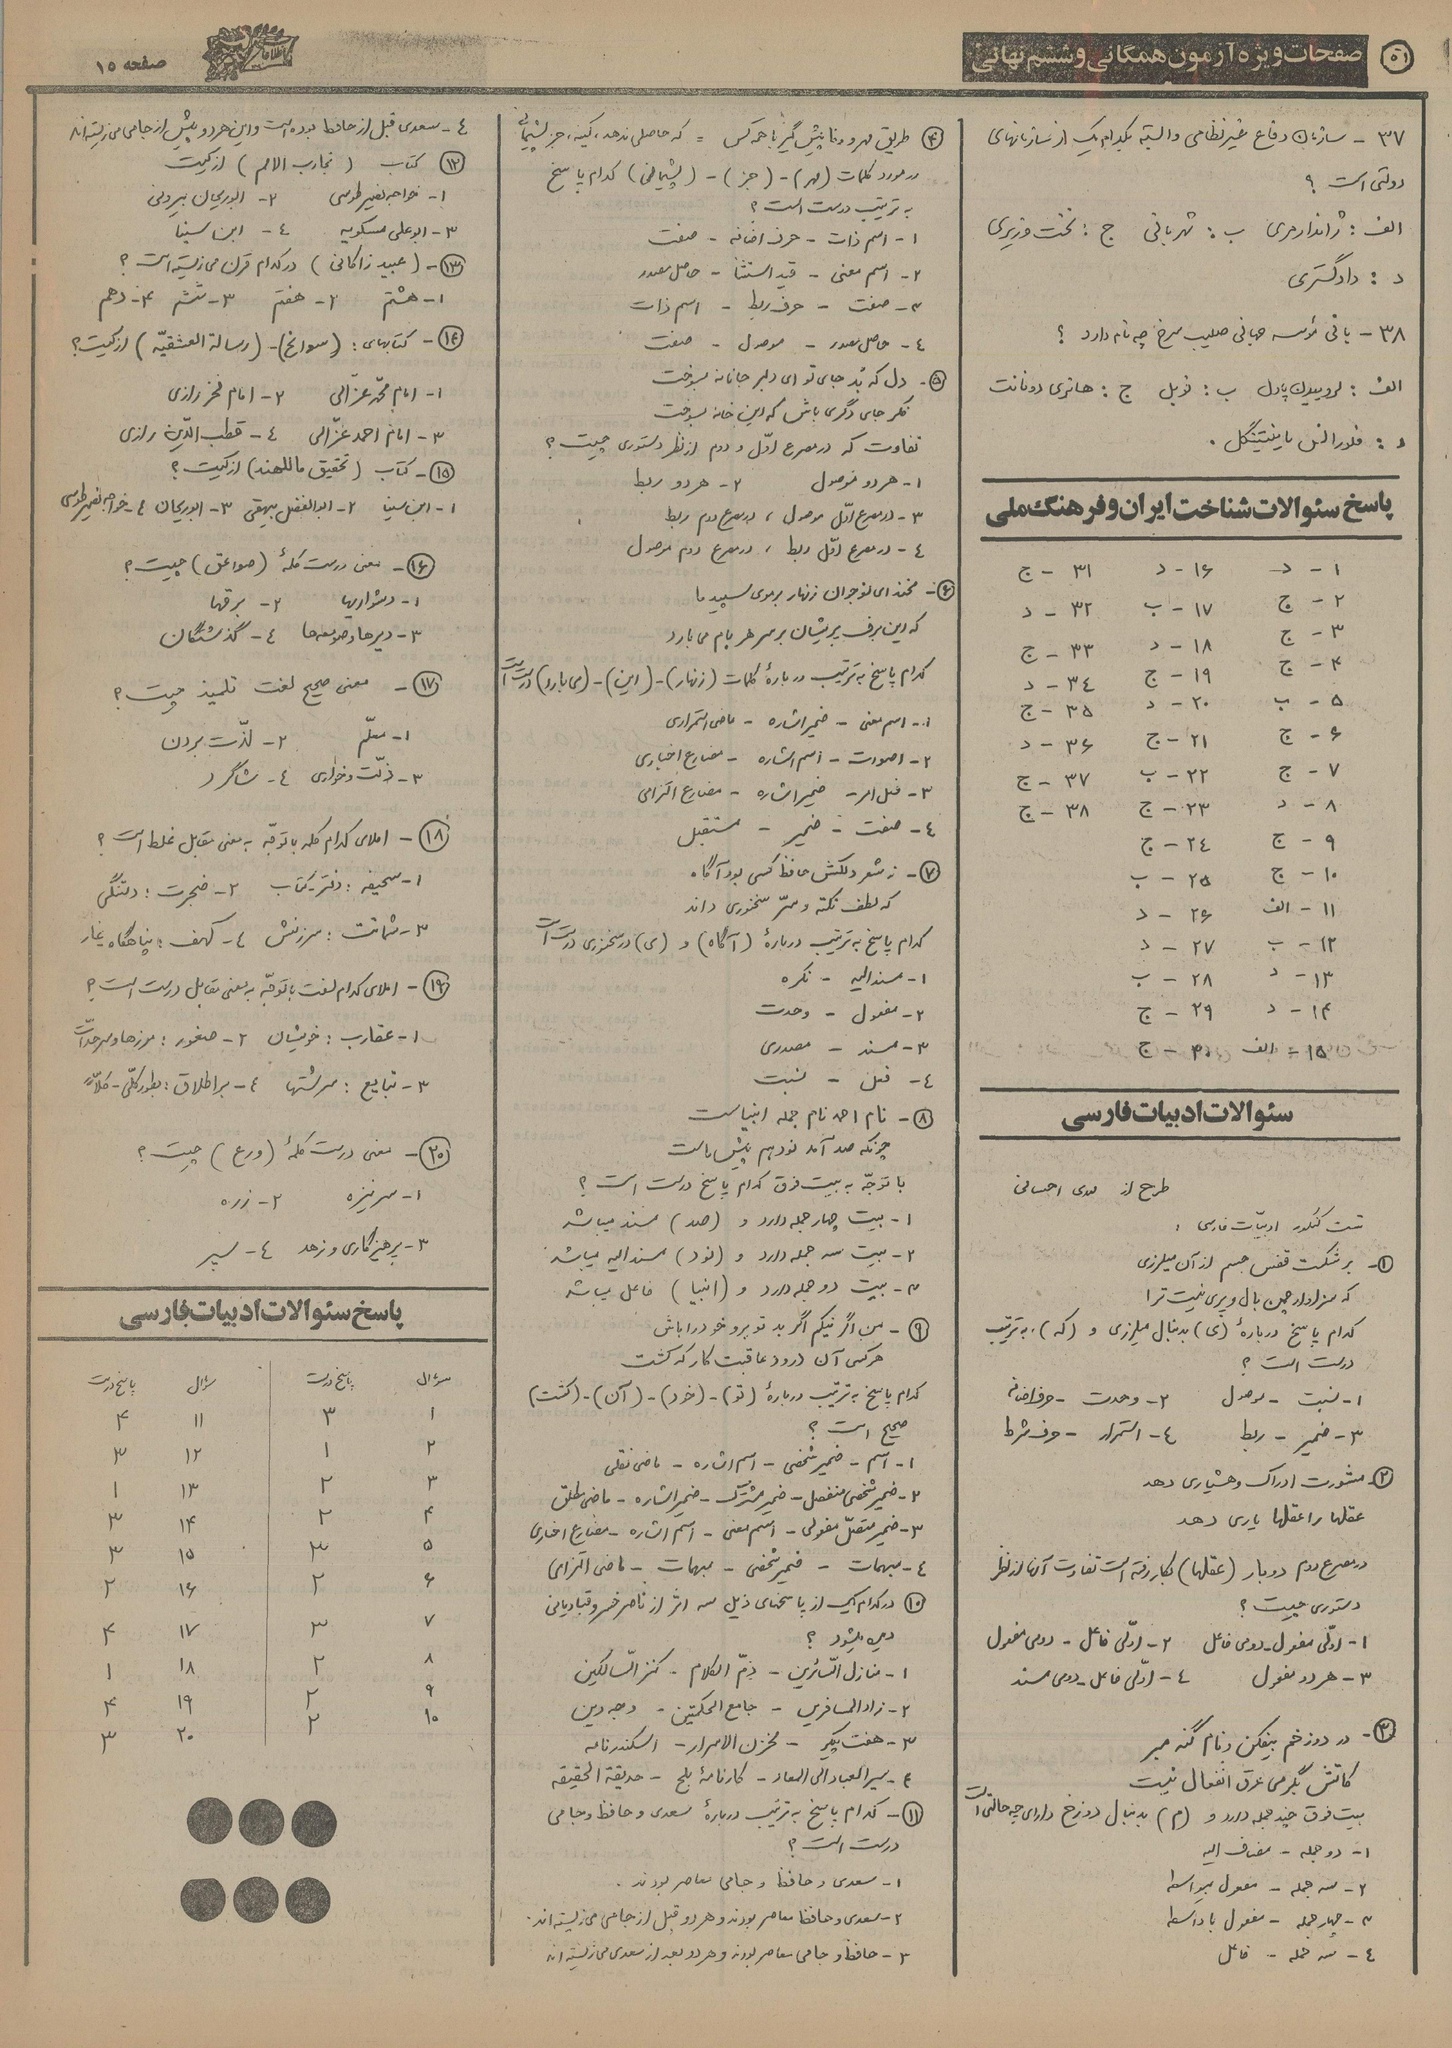 ۵۱
صفحات ویژه آزمون همگانی و ششم نهائی
صفحه ۱۵
۳۷ - سازمان دفاع غیرنظامی وابسته بکدام یک از سازمانهای
دولتی است ؟
الف : ژاندارمری ب : شهربانی ج : نخست وزیری
د : دادگستری
۳۸ - بانی مؤسسه جهانی صلیب سرخ چه نام دارد ؟
الف : لرد بیدن پاول ب : نوبل ج : هانری دونانت
د : فلورانس نایتینگل .
پاسخ سئوالات شناخت ایران و فرهنگ ملی
۱ - د ۱۶ - د ۳۱ - ج
۲ - ج ۱۷ - ب ۳۲ - د
۳ - ج ۱۸ - د ۳۳ - ج
۴ - ج ۱۹ - ج ۳۴ - د
۵ - ب ۲۰ - د ۳۵ - ج
۶ - ج ۲۱ - ج ۳۶ - د
۷ - ج ۲۲ - ب ۳۷ - ج
۸ - د ۲۳ - ج ۳۸ - ج
۹ - ج ۲۴ - ج
۱۰ - ج ۲۵ - ب
۱۱ - الف ۲۶ - د
۱۲ - ب ۲۷ - د
۱۳ - د ۲۸ - ب
۱۴ - د ۲۹ - ج
۱۵ - الف ۳۰ - ج
سئوالات ادبیات فارسی
طرح از مهدی احسانی
تست کنکور ادبیّات فارسی :
۱ - بر شکست قفس جسم از آن میلرزی
که سزاوار چمن بال و پری نیست ترا
کدام پاسخ دربارهٔ (ی) بدنبال میلرزی و (که) ، به ترتیب
درست است ؟
۱ - نسبت - موصول ۲ - وحدت - حرف اضافه
۳ - ضمیر - ربط ۴ - استمرار - حرف شرط
۲ - مشورت ادراک و هشیاری دهد
عقلها را عقلها یاری دهد
در مصرع دوم دو بار (عقلها) بکار رفته است تفاوت آنها از نظر
دستوری چیست ؟
۱ - اولّی مفعول - دومی فاعل ۲ - اولّی فاعل - دومی مفعول
۳ - هر دو مفعول ۴ - اولّی فاعل - دومی مسند
۳ - در دوزخم بیفکن و نام گنه مبر
کاتش بگرمی عرق انفعال نیست
بیت فوق چند جمله دارد و (م) بدنبال دوزخ دارای چه حالتی است
۱ - دو جمله - مضاف الیه
۲ - سه جمله - مفعول بیواسطه
۳ - چهار جمله - مفعول باواسطه
۴ - سه جمله - فاعل
۴ طریق مهر و وفا پیش گیر با همه کس = که حاصلی ندهد ، کینه ، جز پشیمانی
در مورد کلمات (مهر) - (جز) - (پشیمانی) کدام پاسخ
به ترتیب درست است ؟
۱ - اسم ذات - حرف اضافه - صفت
۲ - اسم معنی - قید استثنا - حاصل مصدر
۳ - صفت - حرف ربط - اسم ذات
۴ - حاصل مصدر - موصول - صفت
۵ - دل که بُد جای تو ای دلبر جانانه بسوخت
فکر جای دگری باش که این خانه بسوخت
تفاوت که در مصرع اوّل و دوم از نظر دستوری چیست ؟
۱ - هر دو موصول ۲ - هر دو ربط
۳ - در مصرع اوّل موصول ، در مصرع دوم ربط
۴ - در مصرع اوّل ربط ، در مصرع دوم موصول
۶ - مخند ای نوجوان زنهار بر موی سپید ما
که این برف پریشان بر سر هر بام می بارد
کدام پاسخ به ترتیب دربارهٔ کلمات (زنهار) - (این) - (می بارد) درست است
۱ - اسم معنی - ضمیر اشاره - ماضی استمراری
۲ - اصوات - اسم اشاره - مضارع اخباری
۳ - فعل امر - ضمیر اشاره - مضارع التزامی
۴ - صفت - ضمیر - مستقبل
۷ - ز شعر دلکش حافظ کسی بود آگاه
که لطف نکته و سرّ سخنوری داند
کدام پاسخ به ترتیب دربارهٔ (آگاه) و (ی) در سخنوری درست است
۱ - مسندالیه - نکره
۲ - مفعول - وحدت
۳ - مسند - مصدری
۴ - فعل - نسبت
۸ - نام احمد نام جمله انبیاست
چونکه صد آمد نود هم پیش ماست
با توجّه به بیت فوق کدام پاسخ درست است ؟
۱ - بیت چهار جمله دارد و (صد) مسند میباشد
۲ - بیت سه جمله دارد و (نود) مسندالیه میباشد
۳ - بیت دو جمله دارد و (انبیا) فاعل میباشد
۹ - من اگر نیکم اگر بد تو برو خود را باش
هر کسی آن درود عاقبت کار که کشت
کدام پاسخ به ترتیب دربارهٔ (تو) - (خود) - (آن) - (کشت)
صحیح است ؟
۱ - اسم - ضمیر شخصی - اسم اشاره - ماضی نقلی
۲ - ضمیر شخصی منفصل - ضمیر مشترک - ضمیر اشاره - ماضی مطلق
۳ - ضمیر متصّل مفعولی - اسم معنی - اسم اشاره - مضارع اخباری
۴ - مبهمات - ضمیر شخصی - مبهمات - ماضی التزامی
۱۰ در کدام یک از پاسخهای ذیل سه اثر از ناصر خسرو قبادیانی
دیده میشود ؟
۱ - منازل السّائرین - ذمّ الکلام - کنز السّالکین
۲ - زادالمسافرین - جامع الحکمتین - وجه دین
۳ - هفت پیکر - مخزن الاسرار - اسکندرنامه
۴ - سیرالعباد الی المعاد - کارنامهٔ بلخ - حدیقة الحقیقه
۱۱ - کدام پاسخ به ترتیب دربارهٔ سعدی و حافظ و جامی
درست است ؟
۱ - سعدی و حافظ و جامی معاصر بودند .
۲ - سعدی و حافظ معاصر بودند و هر دو قبل از جامی می زیسته اند .
۳ - حافظ و جامی معاصر بودند و هر دو بعد از سعدی می زیسته اند
۴ - سعدی قبل از حافظ بوده است و این هر دو پیش از جامی می زیسته اند
۱۲ کتاب ( تجارب الامم ) از کیست
۱ - خواجه نصیر طوسی ۲ - ابوریحان بیرونی
۳ - ابوعلی مسکویه ۴ - ابن سینا
۱۳ - ( عبید زاکانی ) در کدام قرن می زیسته است ؟
۱ - هشتم ۲ - هفتم ۳ - ششم ۴ - دهم
۱۴ - کتابهای : (سوانح) - (رسالة العشقیّه) از کیست ؟
۱ - امام محمّد غزّالی ۲ - امام فخر رازی
۳ - امام احمد غزّالی ۴ - قطب الدّین رازی
۱۵ - کتاب (تحقیق ماللهند) از کیست ؟
۱ - ابن سینا ۲ - ابوالفضل بیهقی ۳ - ابوریحان ۴ - خواجه نصیر طوسی
۱۶ - معنی درست کلمهٔ (صواعق) چیست ؟
۱ - دشواریها ۲ - برقها
۳ - دیرها و صومعه ها ۴ - گذشتگان
۱۷ - معنی صحیح لغت تلمیذ چیست ؟
۱ - معلّم ۲ - لذّت بردن
۳ - ذلّت و خواری ۴ - شاگرد
۱۸ - املای کدام کلمه با توجّه به معنی مقابل غلط است ؟
۱ - سحیفه : دفتر - کتاب ۲ - ضجرت : دلتنگی
۳ - شماتت : سرزنش ۴ - کهف : پناهگاه ، غار
۱۹ - املای کدام لغت با توجّه به معنی مقابل درست است ؟
۱ - عقارب : خویشان ۲ - صغور : مرزها و سرحدّات
۳ - تبایع : سرشتها ۴ - براطلاق : بطور کلّی - کلاً
۲۰ - معنی درست کلمهٔ (ورع) چیست ؟
۱ - سرنیزه ۲ - زره
۳ - پرهیزگاری و زهد ۴ - سپر
پاسخ سئوالات ادبیات فارسی
سؤال پاسخ درست سؤال پاسخ درست
۱ ۳ ۱۱ ۴
۲ ۱ ۱۲ ۳
۳ ۲ ۱۳ ۱
۴ ۲ ۱۴ ۳
۵ ۳ ۱۵ ۳
۶ ۲ ۱۶ ۲
۷ ۳ ۱۷ ۴
۸ ۲ ۱۸ ۱
۹ ۲ ۱۹ ۴
۱۰ ۲ ۲۰ ۳